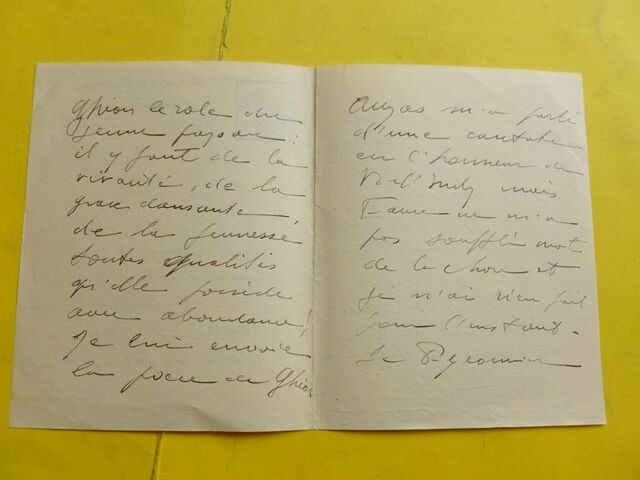 Ghéon le role du
jeune
il y faut de la
vivacité, de la
grace dansante,
de la jeunesse
toutes qualités
qu'elle possède
avec abondance!
Je lui envoie
la pièce de Ghéon
Auzas m'a parlé
d'une cantate
en l'honneur de
V. d'Indy mais
ne m'a
pas soufflé mot
de la chose et
je n'ai rien fait
pour l'instant.